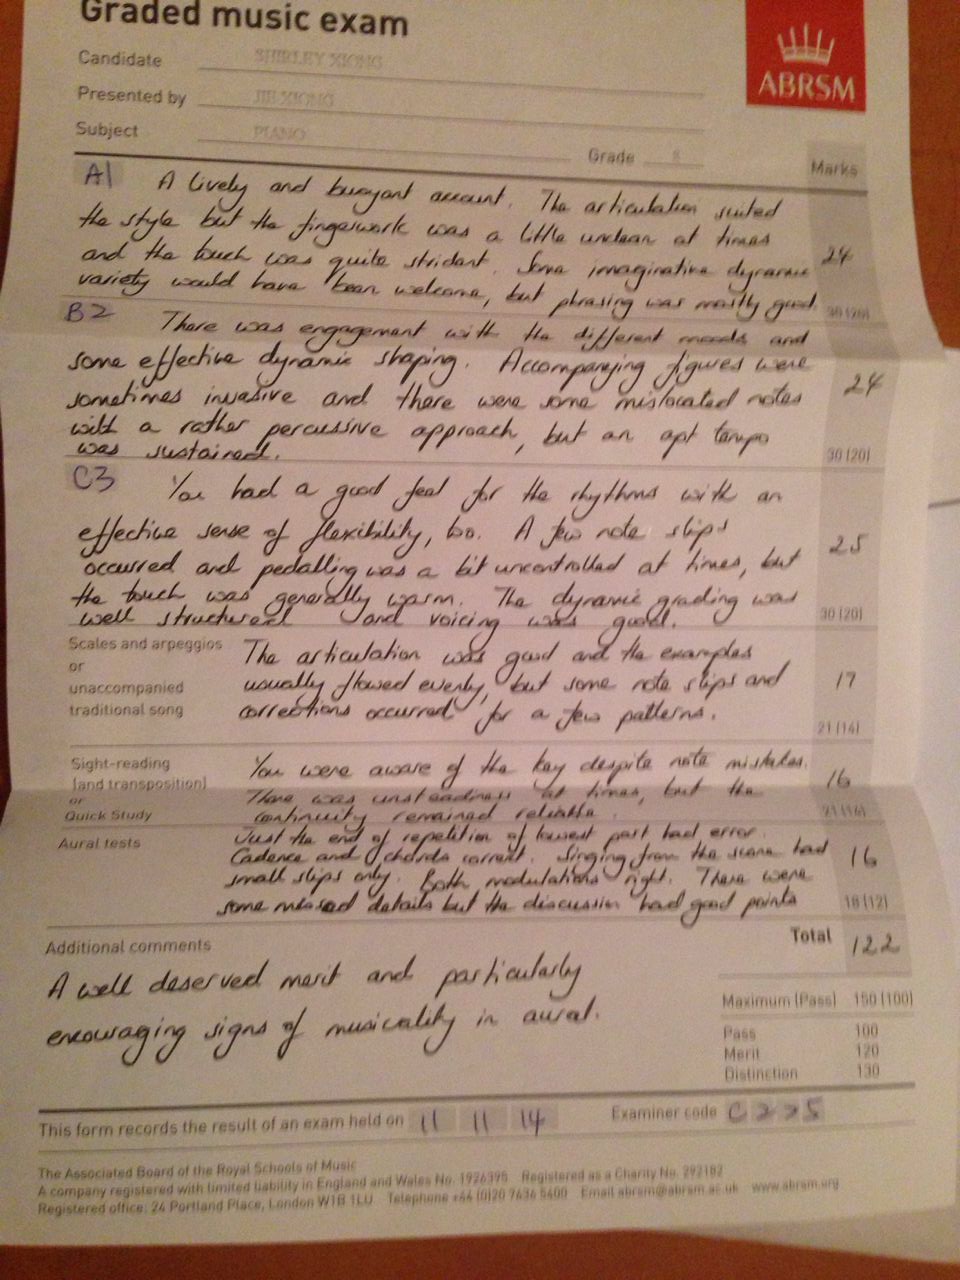 Graded music exam
ABRSM
Candidate SHIRLEY XIONG
Presented by JIE XIONG
Subject PIANO
Grade 8
Marks
A1 A lively and buoyant account. The articulation suited
the style but the fingerwork was a little unclear at times
and the touch was quite strident. Some imaginative dynamic 24
variety would have been welcome, but phrasing was mostly good. 30 (20)
B2 There was engagement with the different moods and
some effective dynamic shaping. Accompanying figures were
sometimes invasive and there were some mislocated notes 24
with a rather percussive approach, but an apt tempo
was sustained. 30 (20)
C3 You had a good feel for the rhythms with an
effective sense of flexibility, too. A few note slips
occurred and pedalling was a bit uncontrolled at times, but 25
the touch was generally warm. The dynamic grading was
well structured and voicing was good. 30 (20)
Scales and arpeggios
or
unaccompanied
traditional song
The articulation was good and the examples
usually flowed evenly, but some note slips and 17
corrections occurred for a few patterns.
21 (14)
Sight-reading
(and transposition)
or
Quick Study
You were aware of the key despite note mistakes. 16
There was unsteadiness at times, but the
continuity remained reliable. 21 (14)
Aural tests
Just the end of repetition of lowest part had error.
Cadence and chords correct. Singing from the score had 16
small slips only. Both modulations right. There were
some missed details but the discussion had good points 18 (12)
Additional comments
Total 122
A well deserved merit and particularly
encouraging signs of musicality in aural.
Maximum (Pass) 150 (100)
Pass 100
Merit 120
Distinction 130
This form records the result of an exam held on 11 11 14 Examiner code C225
The Associated Board of the Royal Schools of Music
A company registered with limited liability in England and Wales No. 1926395 Registered as a Charity No. 292182
Registered office: 24 Portland Place, London W1B 1LU Telephone +44 (0)20 7636 5400 Email abrsm@abrsm.ac.uk www.abrsm.org